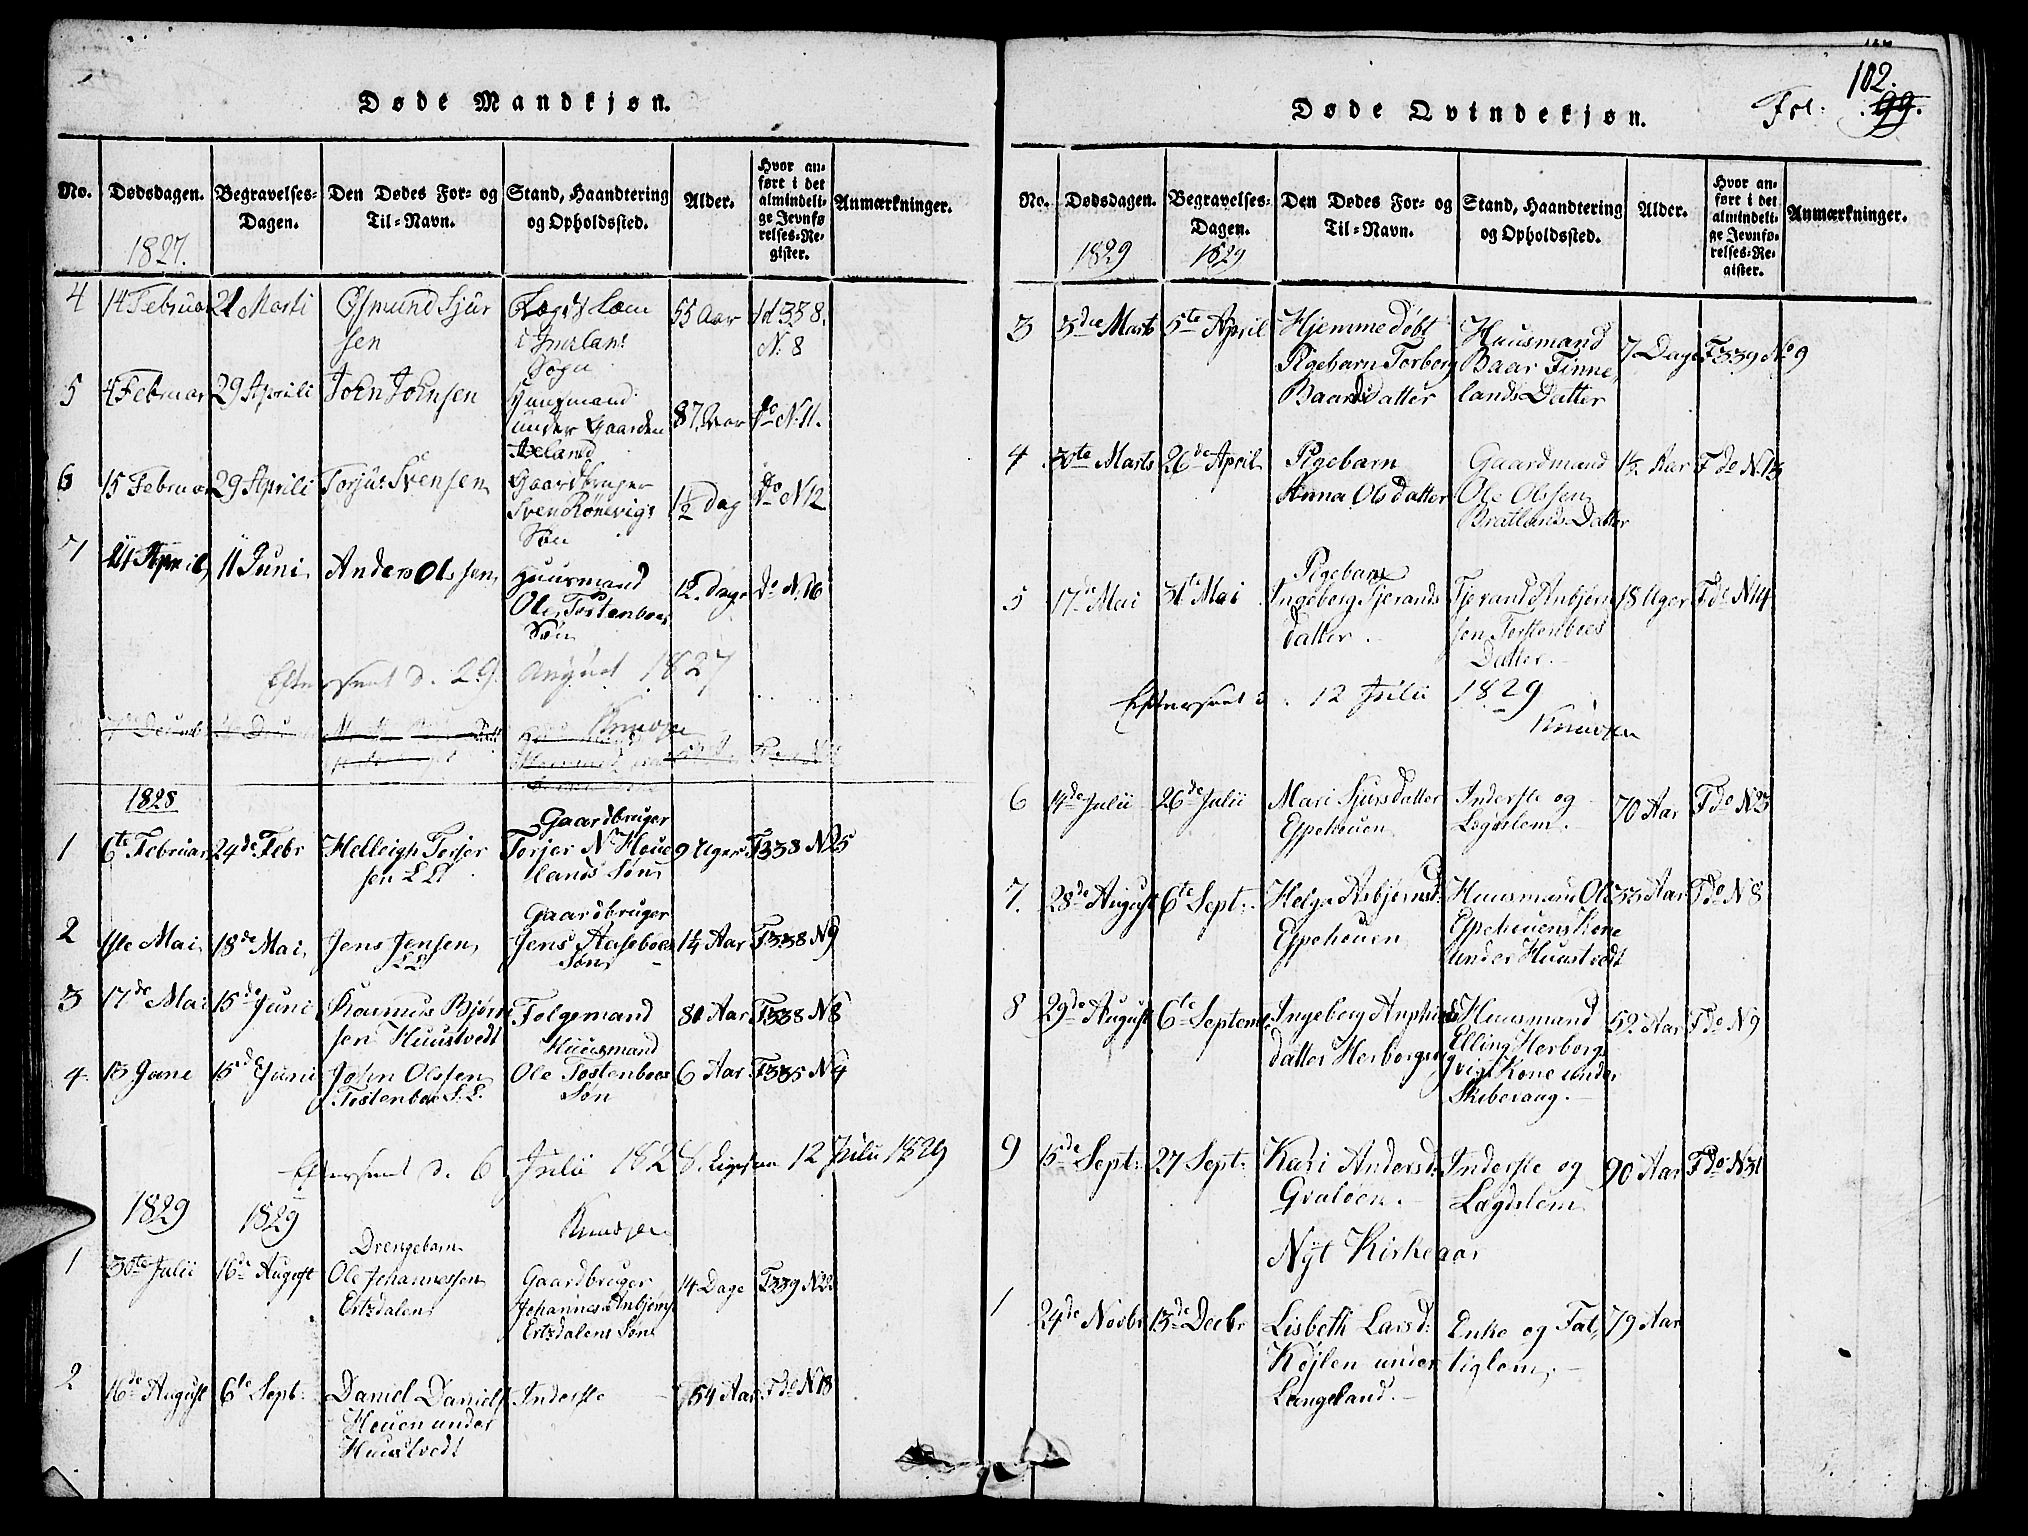 Døde Mandkjøn.
No.
Dødsdagen.
Begravelses-
Dagen.
Den Dødes For- og
Til-Navn.
Stand, Haandtering
og Opholdssted.
Alder.
Hvor an-
ført i det
almindeli-
ge Jevnfø-
relses-Re-
gister.
Anmærkninger.
1827.
4 14 Februar 21 Marti Osmund Sjur
sen
Lægdslem
Sogn
55 Aar
338.
N. 8
5 4 Februar 29 Aprili John Johnsen
Huusmand
under Gaarden
87 Aar do N. 11.
6 15 Februar 29 Aprili Torjus Svensen
Gaardbruger
Sven Rönevigs
Søn
1½ Dag do N 12
7 24 April 11 Juni Anders Olssen
Huusmand
Ole Tostenboes
Søn
12 Dage do N. 16
Efterseet d. 29 August 1827
Knudsen
1828
1 6te Februar 24de Febr Helleigh Torjer
sen LL
Gaardbruger
Torjer N Houe
lands Søn
9 Uger F338 N25
2 1ste Mai 18de Mai Jens Jensen
LL
Gaardbruger
Jens Aaseboes
Søn
14 Aar F338 N9
3 17de Mai 15de Juni Rasmus Bjørn
sen Huustvedt
Folgemand
80 Aar F338 N8
4 13 June 15de Junii John Olssen
Tostenboe L.L.
Huusmand
Ole Tostenboes
Søn
6 Aar F335 N4
Efterseet d. 6 Julii 1828. Ligesaa 12 Julii 1829
Knudsen
1829 1829
1 30te Julii 16de August
Drengebarn
Ole Johannessen
Ertsdalen
Gaardbruger
Johannes Anbjørns
Ertsdalens Søn
14 Dage F339 N22
2 16de August 6te Sept: Daniel Daniels
Houen under
Huustvedt
Inderste
54 Aar F do N18
Døde Qvindekjøn.
Fol: 102.
99.
No.
Dødsdagen.
Begravelses-
Dagen.
Den Dødes For- og
Til-Navn.
Stand, Haandtering
og Opholdssted.
Alder.
Hvor an-
ført i det
almindeli-
ge Jevnfø-
relses-Re-
gister.
Anmærkninger.
1829 1829
3 3die Marts 5te April Hjemmedøbt
Pigebarn Torborg
Baardsdatter
Huusmand
Baar Finne
lands Datter
7 Dage F339 No 9
4 30te Marts 26de April Pigebarn
Anna Olsdatter
Gaardmand
Ole Olssen
Bratlands Datter
1½ Aar F do N13
5 17de Mai 31te Mai
Pigebarn
Ingeborg Tjerands
datter.
Tjerand Anbjørn
sen Torstenboes
Datter.
18 Uger F do N14
Efterseet d. 12 Julii 1829
Knudsen
6 14de Julii 26de Julii Mari Sjursdatter
Espehouen
Inderste og
Legdslem.
70 Aar F do N23
7. 28de August 6te Sept: Helga Asbjørnsd:
Espehouen
Huusmand Ole
Espehouens Kone
under Huustvedt
33 Aar F do N8
8 29de August 6te Septemr Ingeborg Anphinds
datter Herborgsvig
Huusmand
Elling Herborgs
vigs Kone under
Skibevaag.
52 Aar F do N9
9 15de Sept: 27 Sept: Kari Andersd:
Graloen.
Inderste og
Lagdslem
90 Aar F do N31
Nyt Kirkeaar
1 24de Novbr 13de Decbr Lisbeth Larsd:
Kejlen under
Langeland.
Enke og Fat
tiglem,
79 Aar